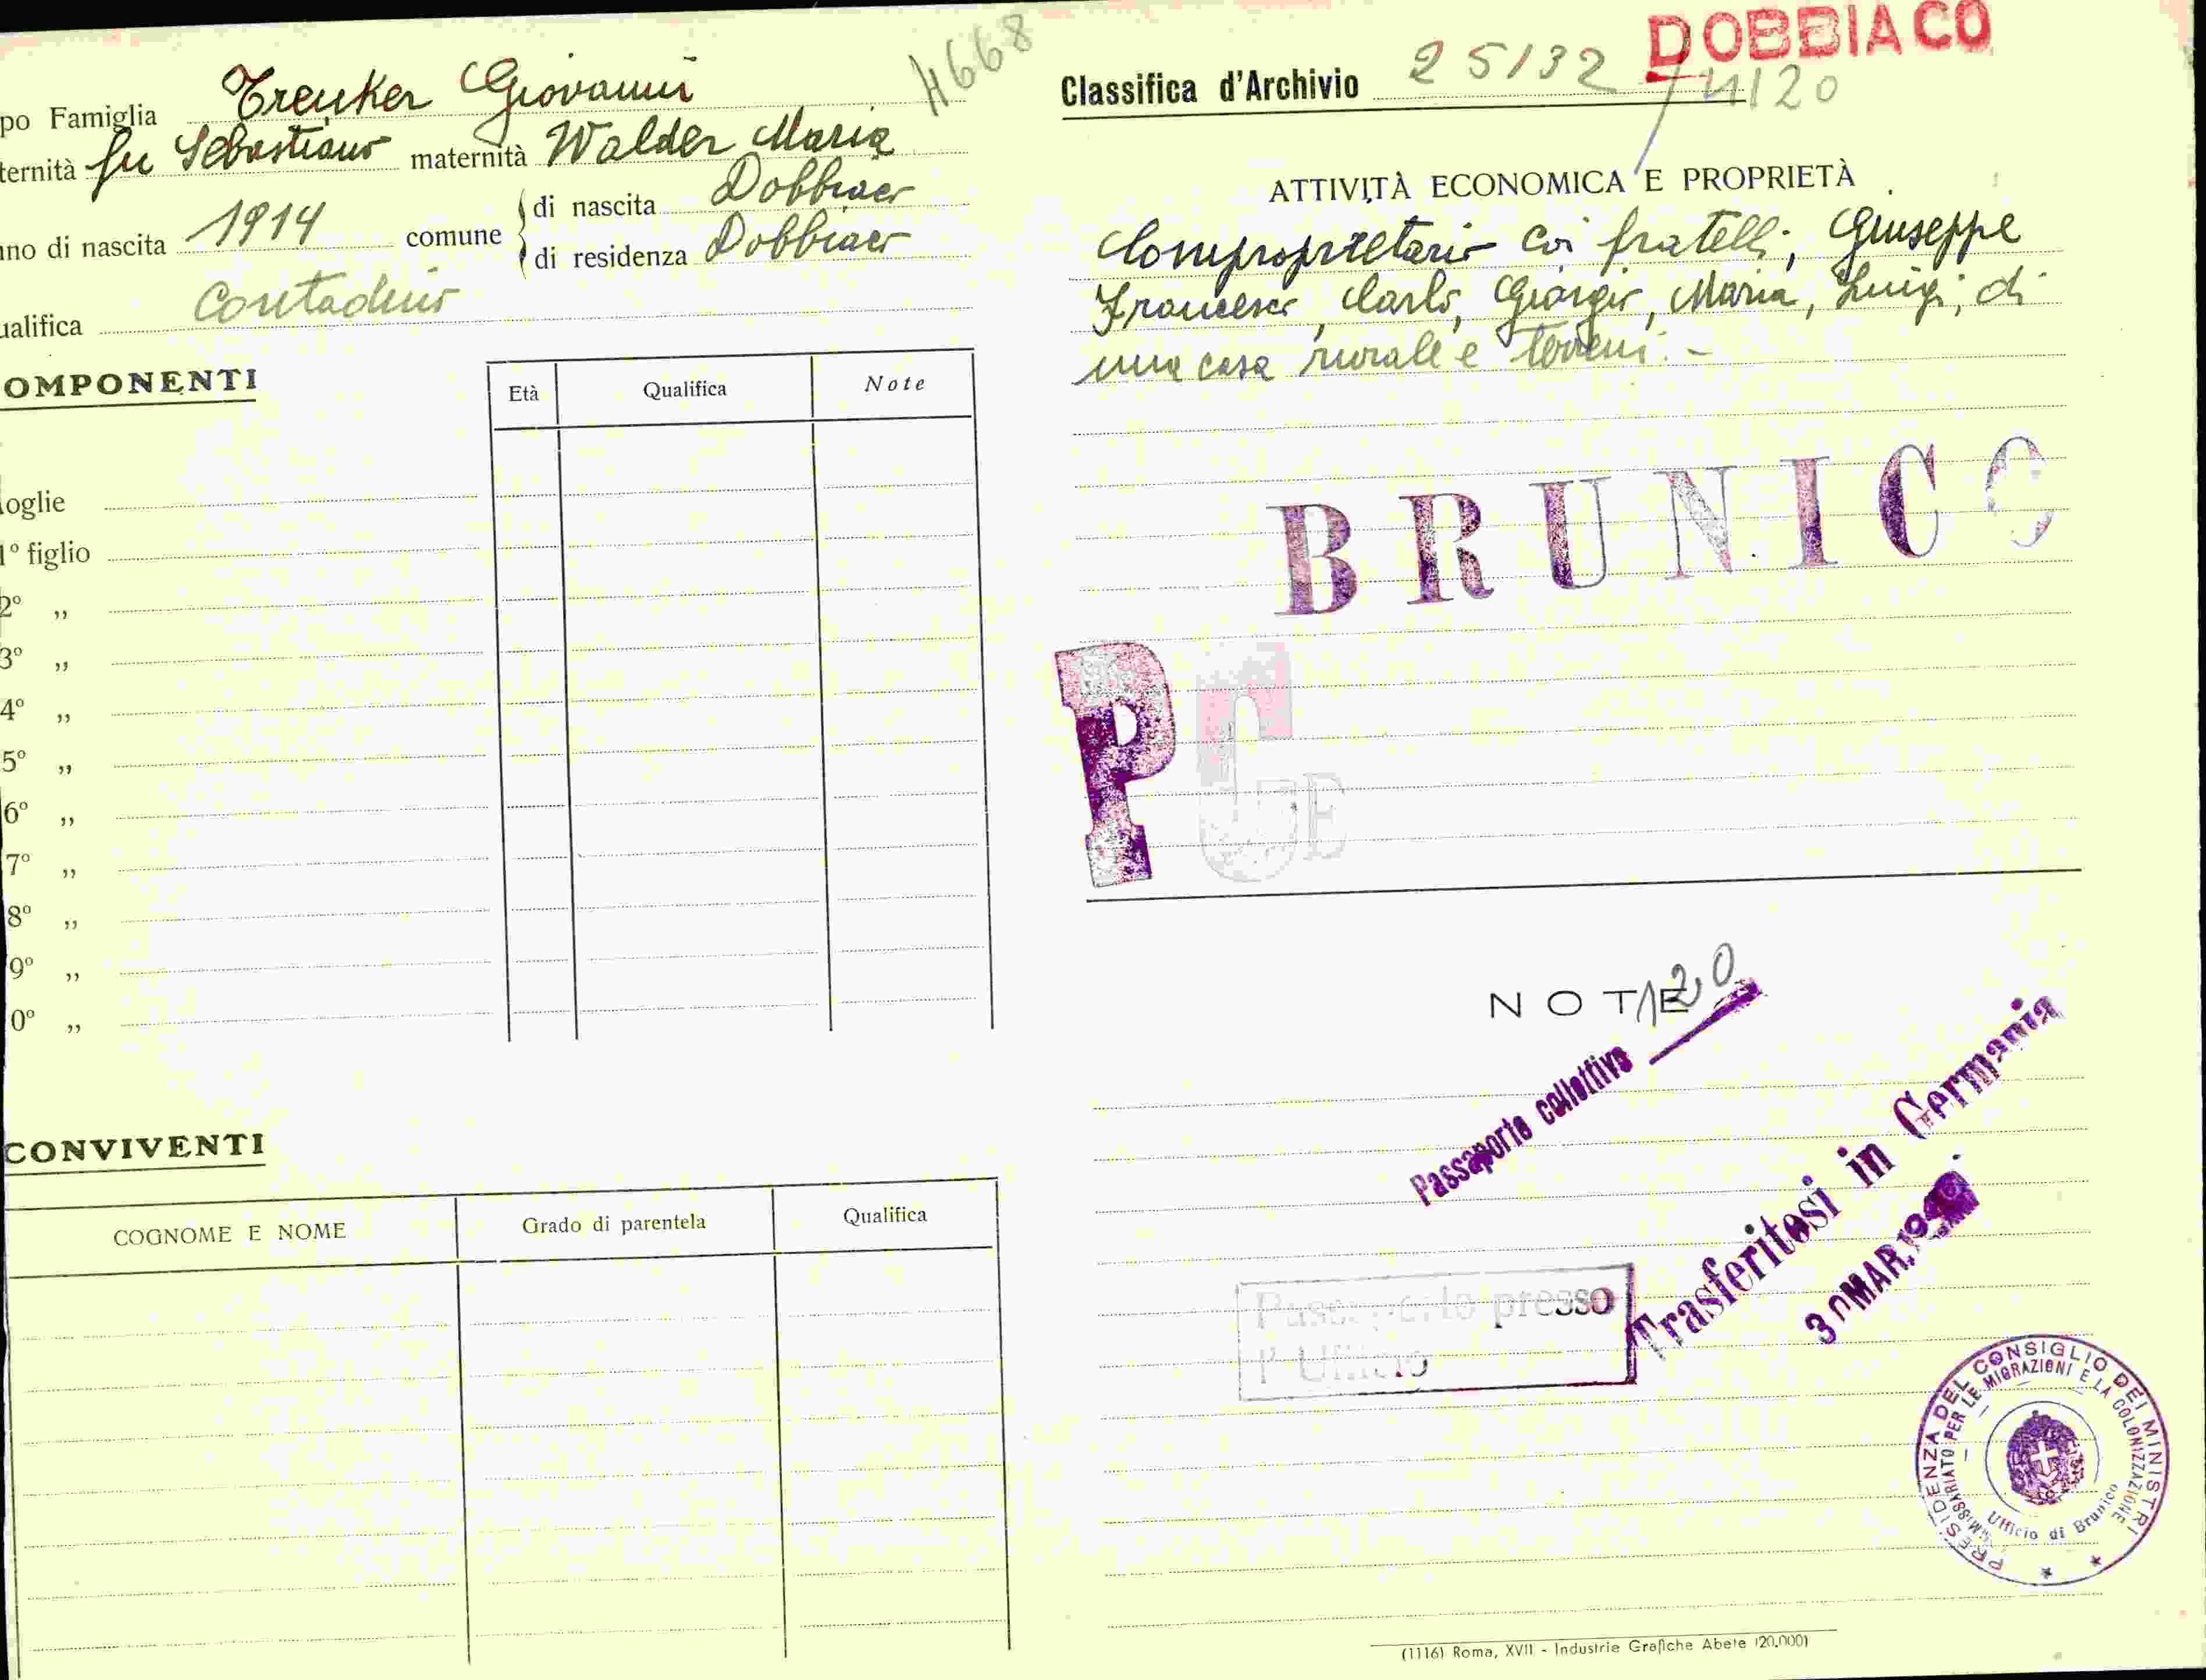 4668
po Famiglia Trenker Giovanni
ternità fu Sebastiano maternità Walder Maria
nno di nascita 1914 comune
di nascita Dobbiaco
di residenza Dobbiaco
ualifica Contadino
OMPONENTI
Età Qualifica Note
oglie
1° figlio
2° „
3° „
4° „
5° „
6° „
7° „
8° „
9° „
0° „
CONVIVENTI
COGNOME E NOME Grado di parentela Qualifica
DOBBIACO
Classifica d'Archivio 25/32 / 4120
ATTIVITÀ ECONOMICA E PROPRIETÀ
Comproprietario coi fratelli, Giuseppe
Francesco, Carlo, Giorgio, Maria, Luigi, di
una casa rurale e terreni. -
BRUNICO
P
NOTE
120
Passaporto collettivo
Trasferitosi in Germania
30 MAR. 19
Passaporto presso
l'Ufficio
PRESIDENZA DEL CONSIGLIO DEI MINISTRI
COMMISSARIATO PER LE MIGRAZIONI E LA COLONIZZAZIONE
Ufficio di Brunico
(1116) Roma, XVII - Industrie Grafiche Abete (20.000)